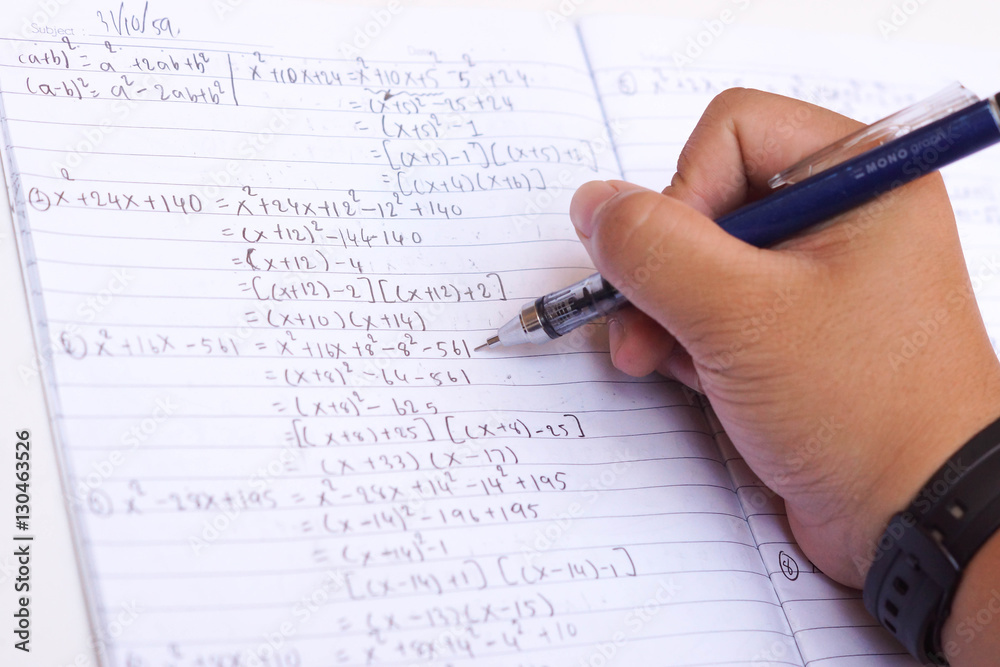 Subject : 31/10/59.
(a+b)² = a² + 2ab + b²
(a-b)² = a² - 2ab + b²
x² + 10x + 24 = x² + 10x + 5² - 5² + 24
= (x+5)² - 25 + 24
= (x+5)² - 1
= [(x+5) - 1][(x+5) + 1]
= [(x+4)(x+6)]
x² + 24x + 140 = x² + 24x + 12² - 12² + 140
= (x+12)² - 144 - 140
= (x+12) - 4
= [(x+12) - 2][(x+12) + 2]
= (x+10)(x+14)
x² + 16x - 561 = x² + 16x + 8² - 8² - 561
= (x+8)² - 64 - 561
= (x+8)² - 625
= [(x+8) + 25][(x+8) - 25]
= (x+33)(x-17)
x² - 28x + 195 = x² - 28x + 14² - 14² + 195
= (x-14)² - 196 + 195
= (x+14)² - 1
= [(x-14) + 1][(x-14) - 1]
= (x-13)(x-15)
MONO graph
8
Adobe Stock | #130463526